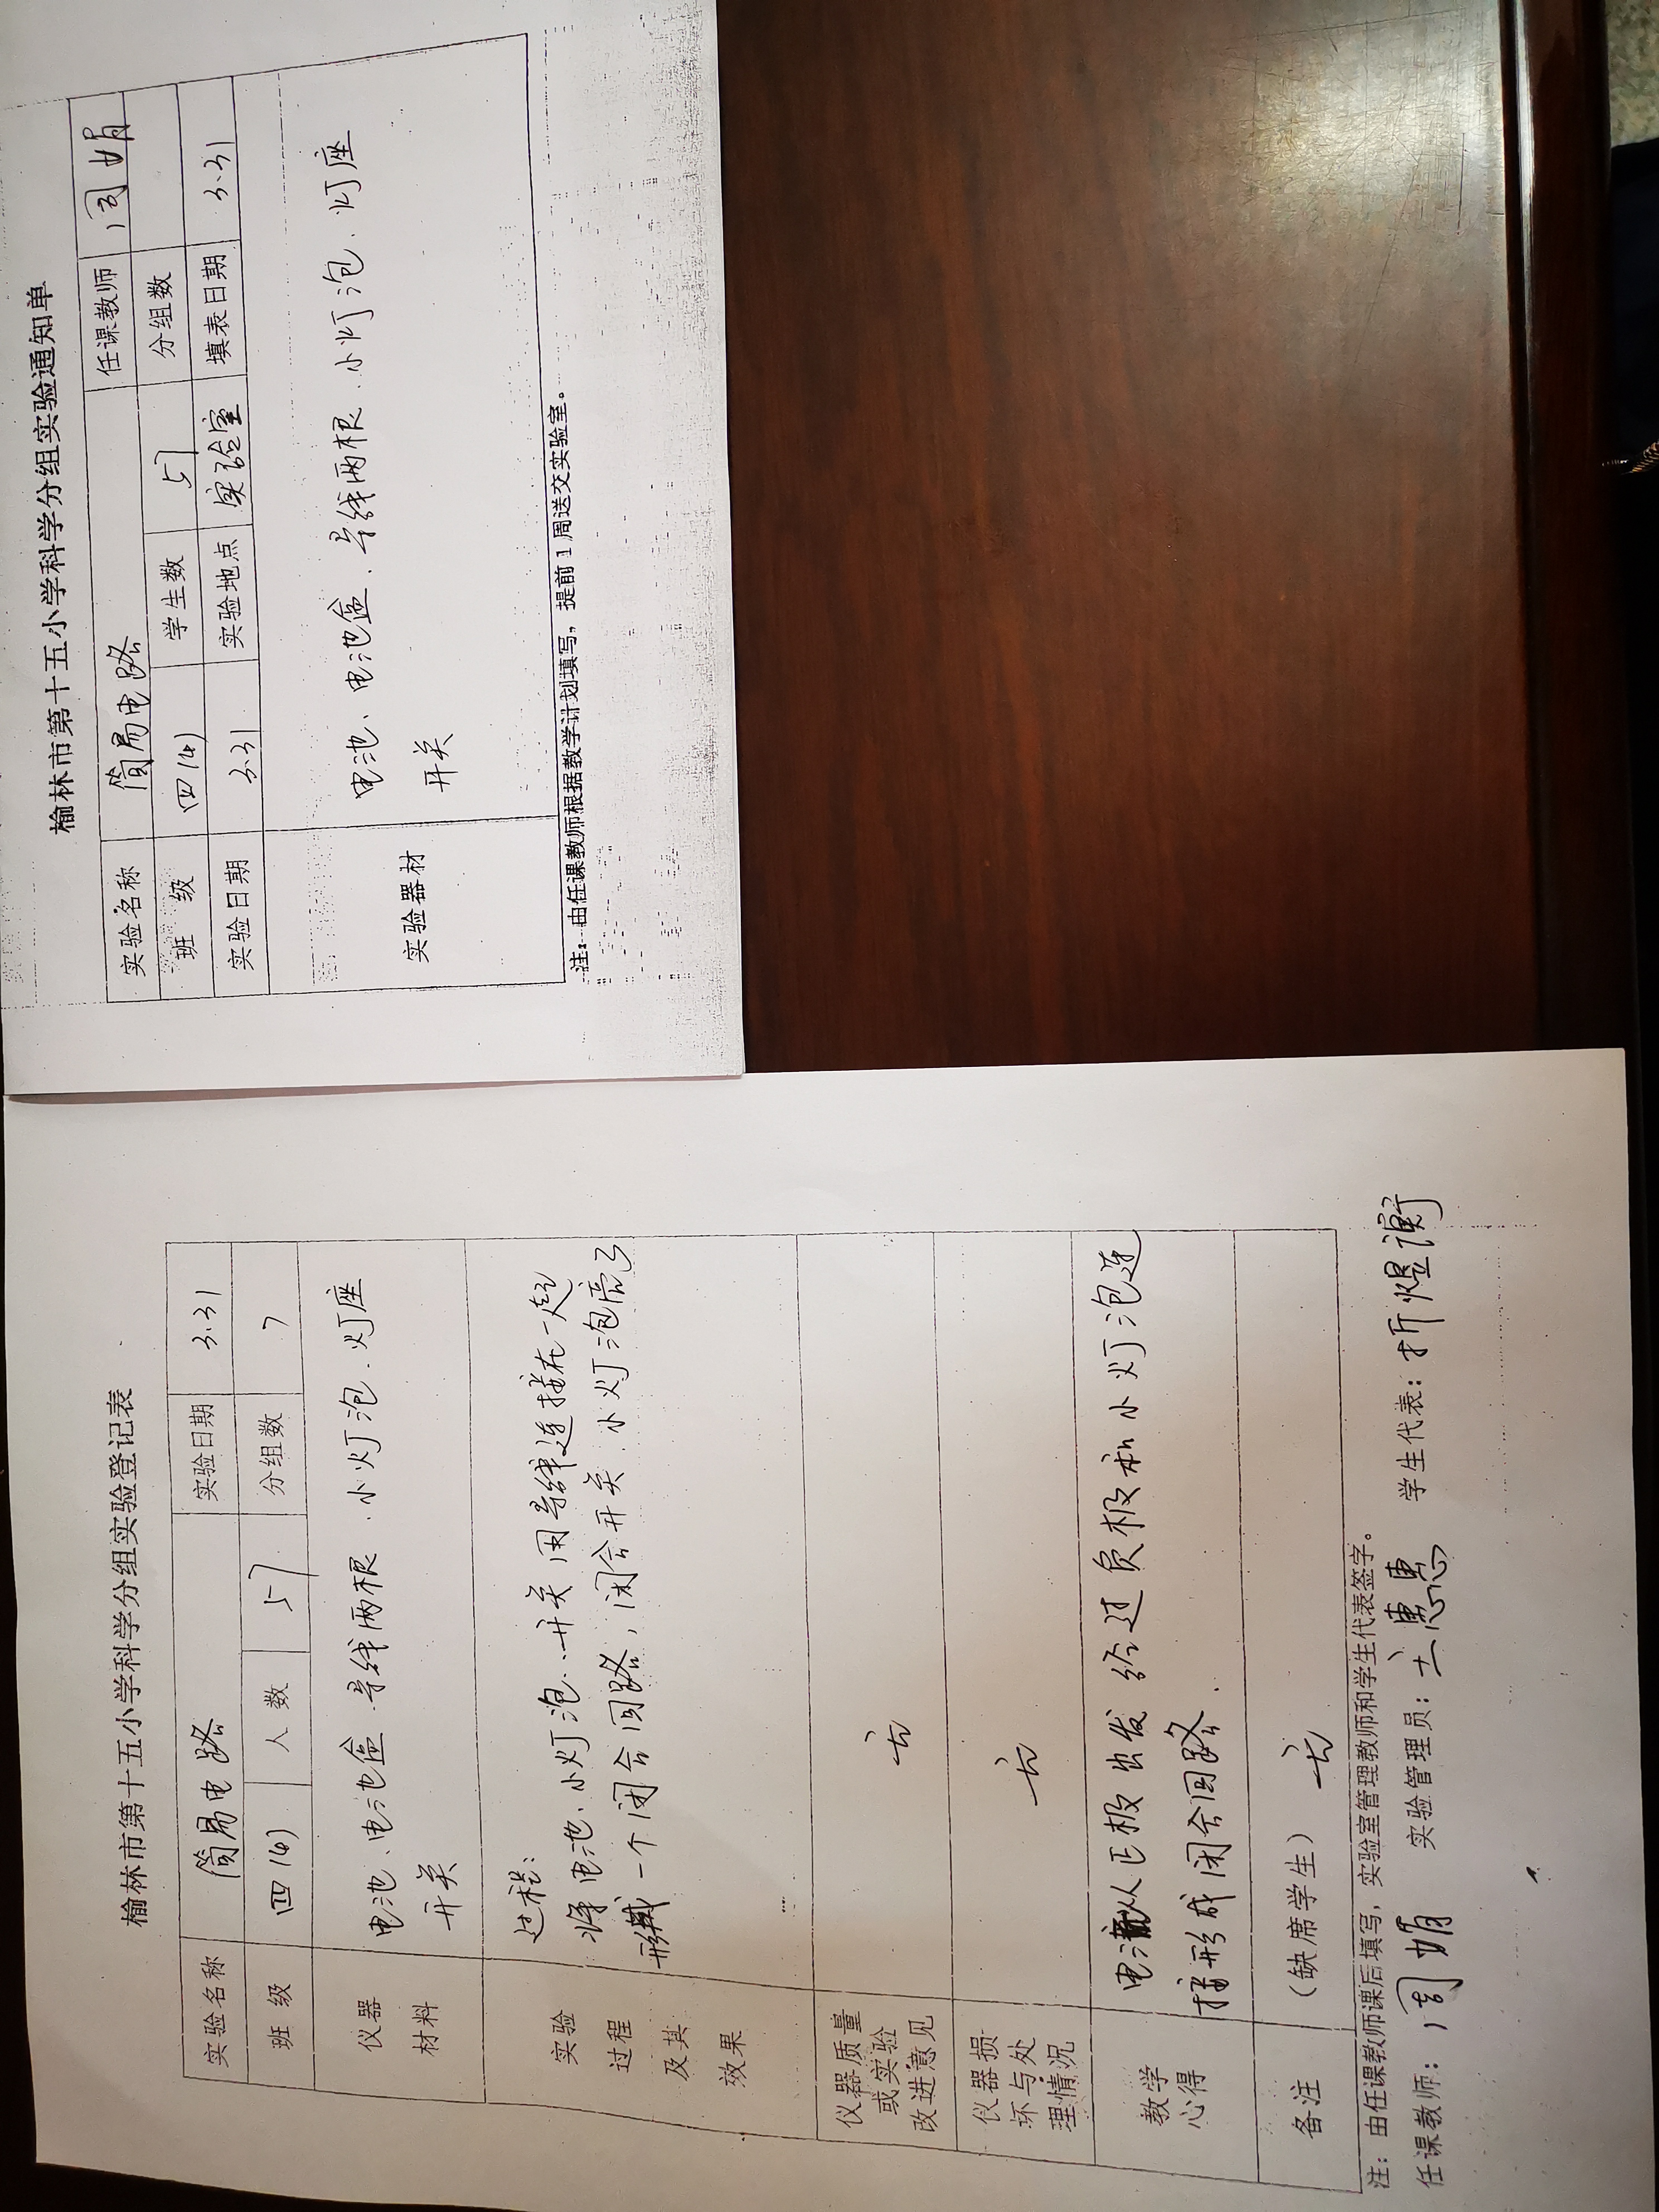 榆林市第十五小学科学分组实验登记表
实验名称 简易电路 实验日期 3.31
班 级 四(4) 人 数 57 分组数 7
仪器 电池、电池盒 导线两根、小灯泡、灯座
材料 开关
实验 过程:
过程 将电池、小灯泡、开关用导线连接在一起
及其 形成一个闭合回路,闭合开关,小灯泡亮了
效果
仪器质量
或实验 无
改进意见
仪器损
坏与处 无
理情况
教学 电流从正极出发 经过负极和小灯泡连
心得 接形成闭合回路.
备注 (缺席学生) 无
注: 由任课教师课后填写, 实验室管理教师和学生代表签字。
任课教师: 周娟 实验管理员: 王惠惠 学生代表: 折煜谢
榆林市第十五小学科学分组实验通知单
实验名称 简易电路 任课教师 周娟
班 级 四(4) 学生数 57 分组数
实验日期 3.31 实验地点 实验室 填表日期 3.31
实验器材 电池、电池盒、导线两根、小灯泡、灯座
开关
注: 由任课教师根据教学计划填写, 提前1周送交实验室。